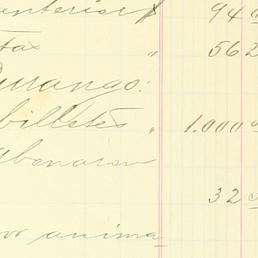 anterior $ 94
tas " 562
Durango:
billetes " 1.000
abonaron
32
por anima-